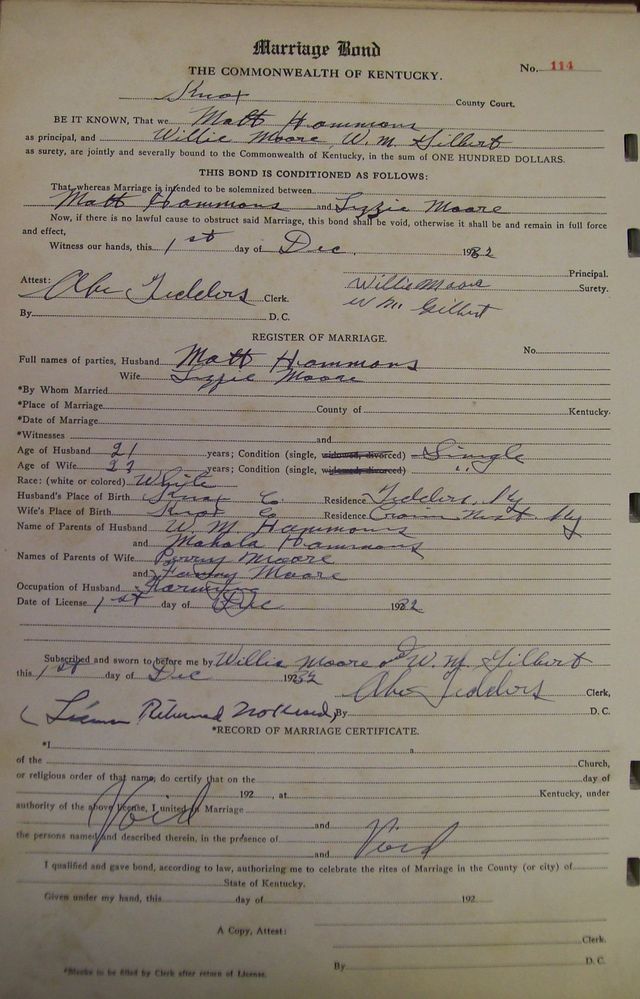 Marriage Bond
THE COMMONWEALTH OF KENTUCKY.
No. 114
Knox County Court.
BE IT KNOWN, That we Matt Hammons
as principal, and Willie Moore, W. M. Gilbert
as surety, are jointly and severally bound to the Commonwealth of Kentucky, in the sum of ONE HUNDRED DOLLARS.
THIS BOND IS CONDITIONED AS FOLLOWS:
That whereas Marriage is intended to be solemnized between
Matt Hammons and Lizzie Moore
Now, if there is no lawful cause to obstruct said Marriage, this bond shall be void, otherwise it shall be and remain in full force
and effect,
Witness our hands, this 1st day of Dec. 1932
Principal.
Attest: Willie Moore Surety.
Abe Fedders Clerk. W M. Gilbert
By D. C.
REGISTER OF MARRIAGE.
No.
Full names of parties, Husband Matt Hammons
Wife Lizzie Moore
*By Whom Married
*Place of Marriage County of Kentucky.
*Date of Marriage
*Witnesses and
Age of Husband 21 years; Condition (single, widowed, divorced) Single
Age of Wife 27 years; Condition (single, widowed, divorced) "
Race: (white or colored) White
Husband's Place of Birth Knox Co Residence Fedders, Ky
Wife's Place of Birth Knox Co Residence Ky
Name of Parents of Husband W. M. Hammons
and Mahala Hammons
Names of Parents of Wife Perry Moore
and Moore
Occupation of Husband Farming
Date of License 1st day of Dec 1932
Subscribed and sworn to before me by Willie Moore & W. M. Gilbert
this 1st day of Dec 1932
Abe Fedders Clerk,
(License Returned Not Used) By D. C.
*RECORD OF MARRIAGE CERTIFICATE.
*I a
of the Church,
or religious order of that name, do certify that on the day of
192 , at Kentucky, under
authority of the above license, I united in Marriage
Void
and
the persons named and described therein, in the presence of
and Void
I qualified and gave bond, according to law, authorizing me to celebrate the rites of Marriage in the County (or city) of
State of Kentucky.
Given under my hand, this day of 192
A Copy, Attest:
Clerk.
By D. C.
*Blanks to be filled by Clerk after return of License.